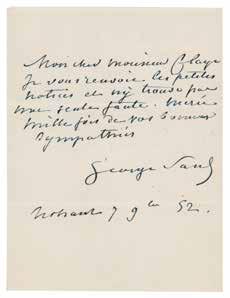 Mon cher monsieur Claye
Je vous renvoie les petites
notices et n'y trouve pas
une seule faute. merci
mille fois de vos bonnes
sympathies
George Sand
Nohant 7 9bre 52.